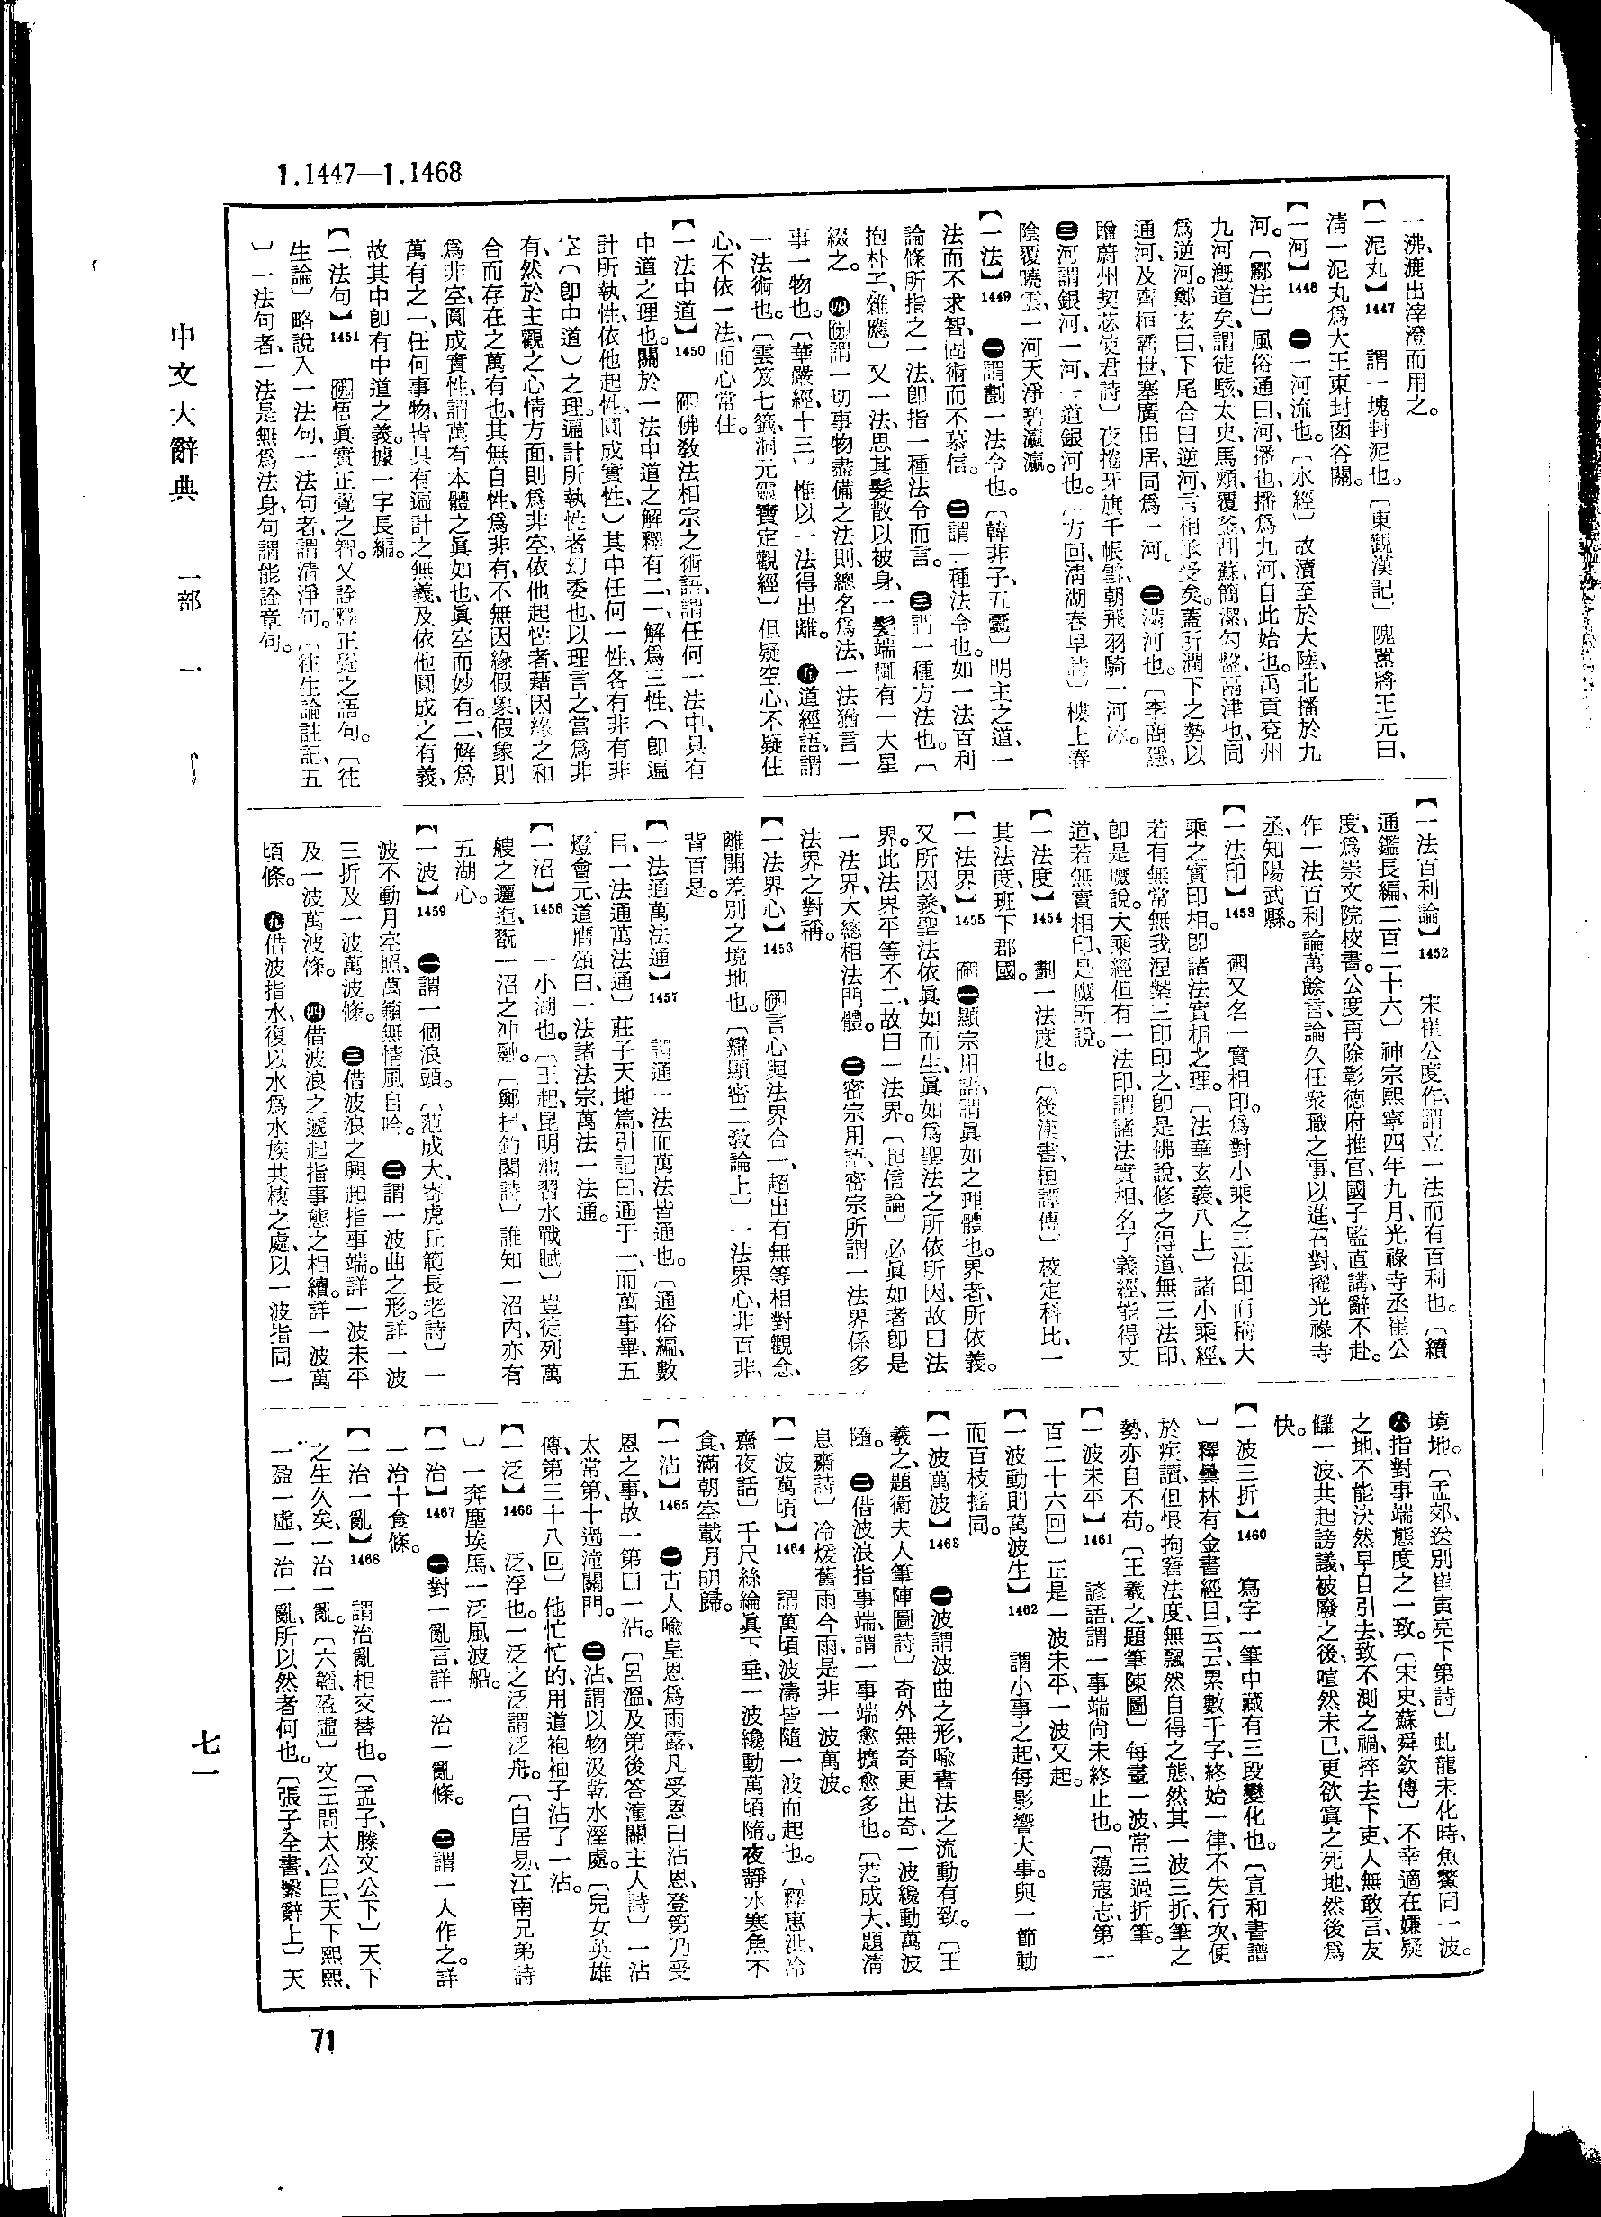 1.1447—1.1468
一沸、漉出滓澄而用之。
【一泥丸】1447 謂一塊封泥也。〔東觀漢記〕隗囂將王元曰、
請一泥丸爲大王東封函谷關。
【一河】1448 ㊀一河流也。〔水經〕故瀆至於大陸、北播於九
河。〔酈注〕風俗通曰、河、播也、播爲九河自此始也。禹貢兗州
九河旣道矣、謂徒駭、太史、馬頰、覆釜、胡蘇、簡潔、勾盤、鬲津也、同
爲逆河。鄭玄曰、下尾合曰逆河、言相承受矣。蓋疏潤下之勢以
通河、及齊桓霸世、塞廣田居、同爲一河。㊁滿河也。〔李商隱、
贈蔚州契苾使君詩〕夜捲牙旗千帳雪、朝飛羽騎一河冰。
㊂河謂銀河、一河、一道銀河也。〔方回、淸湖春早詩〕樓上春
陰覆曉雲、一河天淨碧瀛瀛。
【一法】1449 ㊀謂劃一法令也。〔韓非子、五蠹〕明主之道、一
法而不求智、固術而不慕信。㊁謂一種法令也。如一法百利
論條所指之一法、卽指一種法令而言。㊂謂一種方法也。〔
抱朴子、雜應〕又一法、思其髮散以被身、一髮端輒有一大星
綴之。㊃佛謂一切事物盡備之法則、總名爲法、一法猶言一
事一物也。〔華嚴經、十三〕惟以一法得出離。㊄道經語、謂
一法術也。〔雲笈七籤、洞元靈寶定觀經〕但疑空心、不疑住
心、不依一法、而心常住。
【一法中道】1450 佛佛敎法相宗之術語、謂任何一法中、具有
中道之理也。關於一法中道之解釋有二、一、解爲三性、(卽遍
計所執性、依他起性、圓成實性、)其中任何一性、各有非有非
空(卽中道)之理。遍計所執性者幻委也、以理言之、當爲非
有、然於主觀之心情方面、則爲非空、依他起性者、藉因緣之和
合而存在之萬有也、其無自性、爲非有、不無因緣假象、假象則
爲非空、圓成實性、謂萬有本體之眞如也、眞空而妙有。二、解爲
萬有之一、任何事物、皆具有遍計之無義、及依他圓成之有義、
故其中卽有中道之義。據一字長編。
【一法句】1451 佛悟眞實正覺之智。又詮釋正覺之語句。〔往
生論〕略說入一法句、一法句者、謂淸淨句。〔往生論註記、五
〕一法句者、一法是無爲法身、句謂能詮章句。
【一法百利論】1452 宋崔公度作、謂立一法而有百利也。〔續
通鑑長編、二百二十六〕神宗熙寧四年九月、光祿寺丞崔公
度、爲崇文院校書。公度再除彰德府推官、國子監直講、辭不赴。
作一法百利論萬餘言、論久任衆職之事、以進、召對、擢光祿寺
丞、知陽武縣。
【一法印】1453 佛又名一實相印。爲對小乘之三法印而稱大
乘之實印相。卽諸法實相之理。〔法華玄義、八上〕諸小乘經、
若有無常無我涅槃三印印之、卽是佛說、修之得道、無三法印、
卽是魔說。大乘經但有一法印、謂諸法實相、名了義經、能得大
道、若無實相印、是魔所說。
【一法度】1454 劃一法度也。〔後漢書、桓譚傳〕校定科比、一
其法度、班下郡國。
【一法界】1455 佛㊀顯宗用語、謂眞如之理體也。界者、所依義。
又所因義、聖法依眞如而生、眞如爲聖法之所依所因、故曰法
界。此法界平等不二、故曰一法界。〔起信論〕心眞如者卽是
一法界、大總相法門體。㊁密宗用語、密宗所謂一法界係多
法界之對稱。
【一法界心】1453 佛言心與法界合一、超出有無等相對觀念、
離開差別之境地也。〔辯顯密二敎論上〕一法界心、非百非、
背百是。
【一法通萬法通】1457 謂通一法而萬法皆通也。〔通俗編、數
目、一法通萬法通〕莊子天地篇、引記曰、通于一、而萬事畢、五
燈會元、道膺頌曰、一法諸法宗、萬法一法通。
【一沼】1458 一小湖也。〔王起、昆明池習水戰賦〕豈徒列萬
艘之邐迤、翫一沼之沖融。〔鄭〕誰知一沼內、亦有
五湖心。
【一波】1459 ㊀謂一個浪頭。〔范成大、寄虎丘範長老詩〕一
波不動月空照、萬籟無情風自吟。㊁謂一波曲之形。詳一波
三折及一波萬波條。㊂借波浪之興起指事端。詳一波未平
及一波萬波條。㊃借波浪之遞起、指事態之相續。詳一波萬
頃條。㊄借波指水、復以水爲水族共棲之處、以一波指同一
境地。〔孟郊、送別崔寅亮下第詩〕虬龍未化時、魚鱉同一波。
㊅指對事端態度之一致。〔宋史、蘇舜欽傳〕不幸適在嫌疑
之地、不能決然早自引去、致不測之禍、捽去下吏、人無敢言、友
讎一波、共起謗議、被廢之後、喧然未已、更欲寘之死地、然後爲
快。
【一波三折】1460 寫字一筆中藏有三段變化也。〔宣和書譜
〕釋曇林有金書經目云云、累數千字、終始一律、不失行次、便
於疾讀、但恨拘窘法度、無飄然自得之態、然其一波三折、筆之
勢亦自不苟。〔王羲之、題筆陳圖〕每畫一波、常三過折筆。
【一波未平】1461 諺語、謂一事端尚未終止也。〔蕩寇志、第一
百二十六回〕正是一波未平、一波又起。
【一波動則萬波生】1462 謂小事之起、每影響大事。與一節動
而百枝搖同。
【一波萬波】1463 ㊀波謂波曲之形、喩書法之流動有致。〔王
羲之、題衞夫人筆陣圖詩〕奇外無奇更出奇、一波纔動萬波
隨。㊁借波浪指事端、謂一事端愈擴愈多也。〔范成大、題淸
息齋詩〕冷煖舊雨今雨、是非一波萬波。
【一波萬頃】1464 謂萬頃波濤皆隨一波而起也。〔釋惠洪、冷
齋夜話〕千尺絲綸直下垂、一波纔動萬頃隨。夜靜水寒魚不
食、滿朝空載月明歸。
【一沾】1465 ㊀古人喩皇恩爲雨露、凡受恩曰沾恩、登第乃受
恩之事、故一第曰一沾。〔呂溫、及第後答潼關主人詩〕一沾
太常第、十過潼關門。㊁沾謂以物汲乾水溼處。〔兒女英雄
傳、第三十八回〕他忙忙的用道袍袖子沾了一沾。
【一泛】1466 泛、浮也。一泛之泛謂泛舟。〔白居易、江南兄弟詩
〕一奔塵埃馬、一泛風波船。
【一治】1467 ㊀對一亂言、詳一治一亂條。㊁謂一人作之。詳
一治十食條。
【一治一亂】1468 謂治亂相交替也。〔孟子、滕文公下〕天下
之生久矣、一治一亂。〔六韜、盈虛〕文王問太公曰、天下熙熙、
一盈一虛、一治一亂、所以然者何也。〔張子全書、繫辭上〕天
中文大辭典 一部 一
七一
71